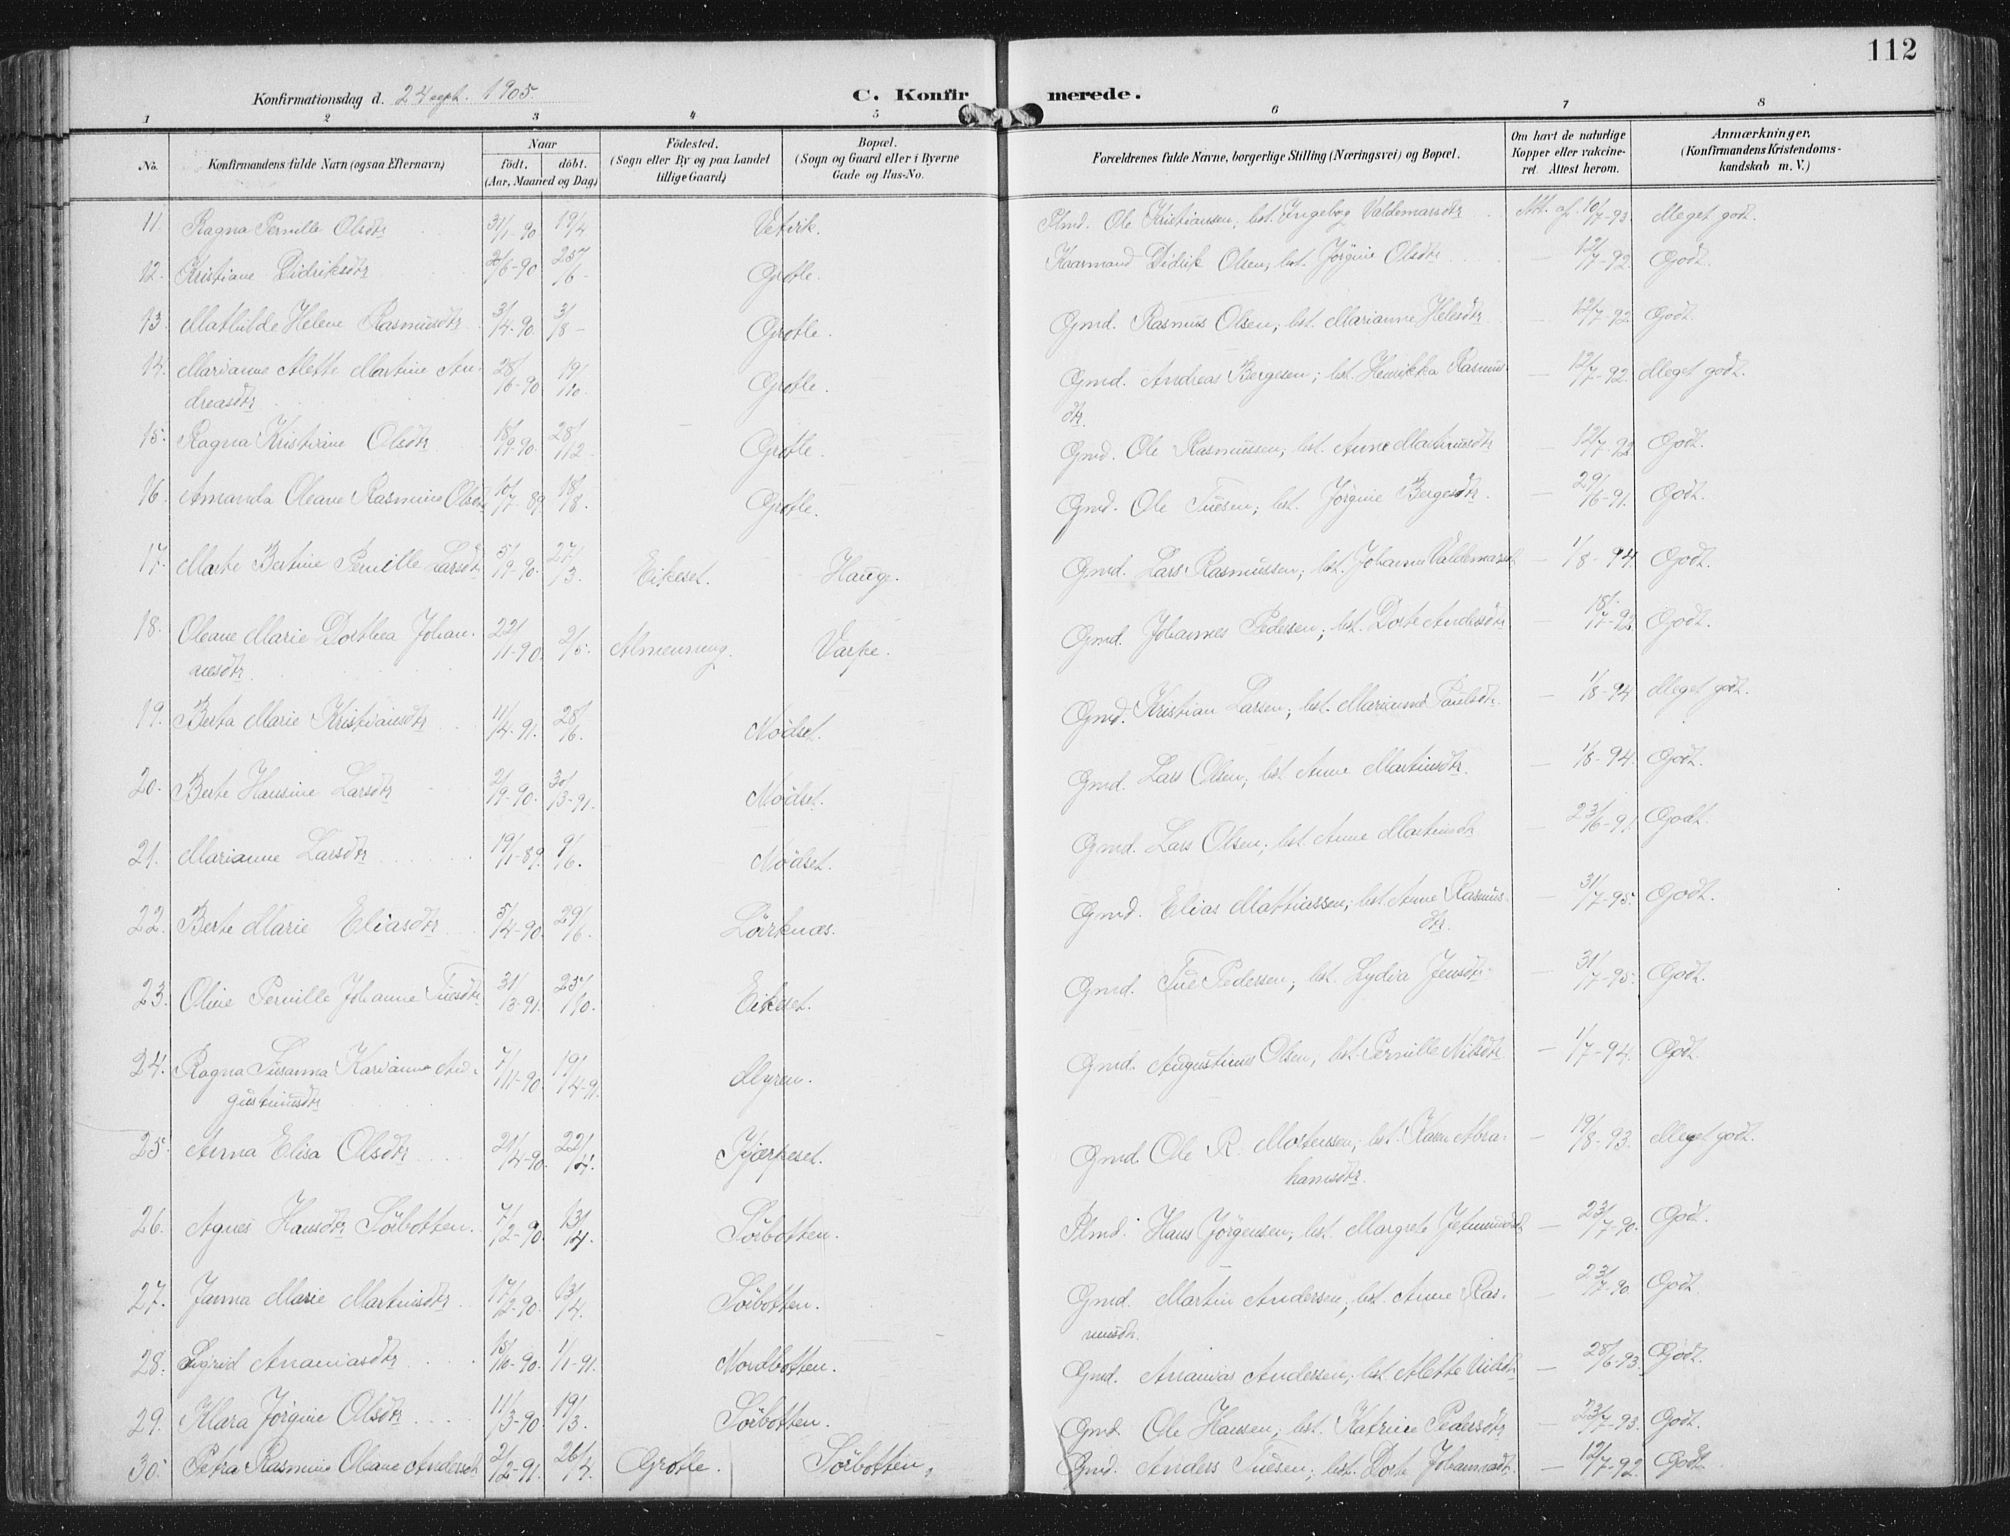 112
Konfirmationsdag d. 24 sept. 1905.
C. Konfirmerede.
1 2 3 4 5 6 7 8
No. Konfirmandens fulde Navn (ogsaa Efternavn) Naar født, døbt. (Aar, Maaned og Dag) Fødested. (Sogn eller By og paa Landet tillige Gaard) Bopæl. (Sogn og Gaard eller i Byerne Gade og Hus-No. Forældrenes fulde Navne, borgerlige Stilling (Næringsvei) og Bopæl. Om havt de naturlige Kopper eller vakcineret. Attest herom. Anmærkninger. (Konfirmandens Kristendomskundskab m. V.)
11. Ragna Pernille Olsdtr 31/1-90 19/4 Vetvik. Plmd. Ole Kristiansen, hst. Ingebog Valdemarsdtr Att. af 10/7-93 Meget godt.
12. Kristiane Didriksdtr 2/6-90 25/6 Grotle. Kaarmand Didrik Olsen, hst. Jørgine Olsdtr — 12/7-92. Godt.
13. Mathilde Helene Rasmusdtr 3/4-90 3/8 - Grotle. Gmd. Rasmus Olsen, hst. Marianne Helesdtr 12/7-92. Godt.
14. Marianne Alette Martine An- 28/6-90 19/10. Grotle. Gmd. Andreas Bergesen; hst. Henrikka Rasmus- — 12/7-92. Meget godt.
dreasdtr dtr.
15. Ragna Kristiane Olsdtr 18/9-90. 28/12. Grotle. Gmd. Ole Rasmussen, hst. Anne Martinusdtr — 12/7-92 Godt.
16. Amanda Oleane Rasmine Olsdtr 10/7-89. 18/8. Grotle. Gmd. Ole Tuesen; hst. Jørgine Bergesdtr. — 29/6-91. Godt.
17. Marte Bertine Pernille Larsdtr 5/9-90. 27/3. Eikeset. Hauge. Gmd. Lars Rasmussen; hst. Johanne Valdemarsdt — 1/8-94. Godt.
18. Oleane Marie Dorthea Johan- 22/11-90. 2/5. Almenning. Varpe. Gmd. Johannes Pedersen; hst. Dorte Andersdtr — 18/7-92 Godt.
nesdtr.
19. Berta Marie Kristiansdtr 11/4-91. 28/6. Nødset. Gmd. Kristian Larsen; hst. Marianne Paulsdtr. — 1/8-94 Meget godt.
20. Berte Hansine Larsdtr 2/9-90. 30/3-91. Nødset. Gmd. Lars Olsen; hst Anne Martinsdtr. — 1/8-94. Godt.
21. Marianne Larsdtr 19/1-89. 9/6. Nødset. Gmd. Lars Olsen; hst. Anne Martinsdt — 23/6-91. Godt.
22. Berte Marie Eliasdtr 5/4-90. 29/6. Løvknæs. Gmd. Elias Mathiassen, hst. Anne Rasmus- — 31/7-95. Godt.
dtr.
23. Oline Pernille Johanne Tuesdtr 31/3-91. 25/10. Eikeset. Gmd. Tue Pedersen; hst. Lydia Jensdtr. — 31/7-95. Godt.
24. Ragna Susanna Karianna Au- 7/11-90. 19/4-91. Myren. Gmd. Augustinus Olsen, hst. Pernille Nilsdtr — 1/7-94. Godt.
gustinusdtr
25. Anna Elisa Olsdtr 24/4-90. 22/4. Kjærkeset. Gmd. Ole R. Mortenssen, hst. Karen Abra- — 19/8-93. Meget godt.
hamsdtr.
26. Agnes Hansdtr Sørbotten. 7/2-90. 13/4. Sørbotten. Plmd. Hans Jørgensen, hst. Margrete Jetmundsdt — 23/7-90. Godt.
27. Janna Marie Martinsdtr 17/2-90. 13/4. Sørbotten. Gmd. Martin Andersen, hst. Anne Ras- — 23/7-90 Godt.
musdtr.
28. Sigrid Ananiasdtr 15/10-90. 1/1-91. Nordbotten. Gmd. Ananias Andersen, hst. Alette Nilsdtr — 28/6-93. Godt.
29. Klara Jørgine Olsdtr 11/3-90 19/3. Sørbotten. Gmd. Ole Hansen; hst. Katrine Pedersdtr — 23/7-93. Godt.
30. Petra Rasmine Oleane Andersdt 2/2-91. 26/4. Grotle. Sørbotten. Gmd. Anders Tuesen; hst. Dorte Johannesdtr. — 12/7-92. Godt.